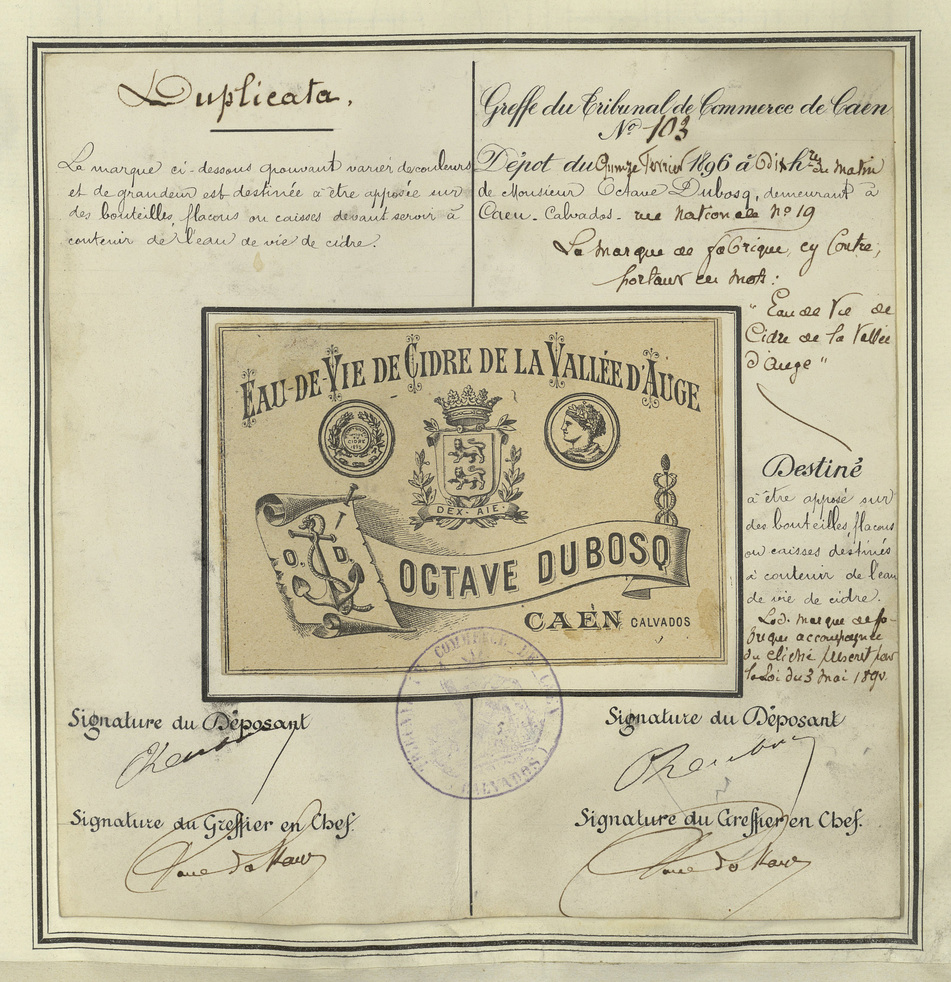 Duplicata.
La marque ci-dessous pouvant varier de couleurs
et de grandeur est destinée à être apposée sur
des bouteilles, flacons ou caisses devant servir à
contenir de l'eau de vie de cidre.
Greffe du Tribunal de Commerce de Caen
No 103
Dépot du Quinze Février 1896 à Dix hres du matin
de Monsieur Octave Dubosq, demeurant à
Caen - Calvados - rue Nationale no 19
La marque de fabrique, cy contre,
portant en mots :
" Eau de Vie de
Cidre de la Vallée
d'Auge "
Destiné
à être apposé sur
des bouteilles, flacons
ou caisses destinés
à contenir de l'eau
de vie de cidre.
La d. marque de fa-
brique accompagnée
du cliché prescrit par
la Loi du 3 Mai 1890.
EAU-DE-VIE DE CIDRE DE LA VALLÉE D'AUGE
CIDRE
DEX-AIE
O. D.
OCTAVE DUBOSQ
CAEN CALVADOS
COMMERCE DE
CALVADOS
Signature du Déposant
Signature du Greffier en Chef.
Signature du Déposant
Signature du Greffier en Chef.